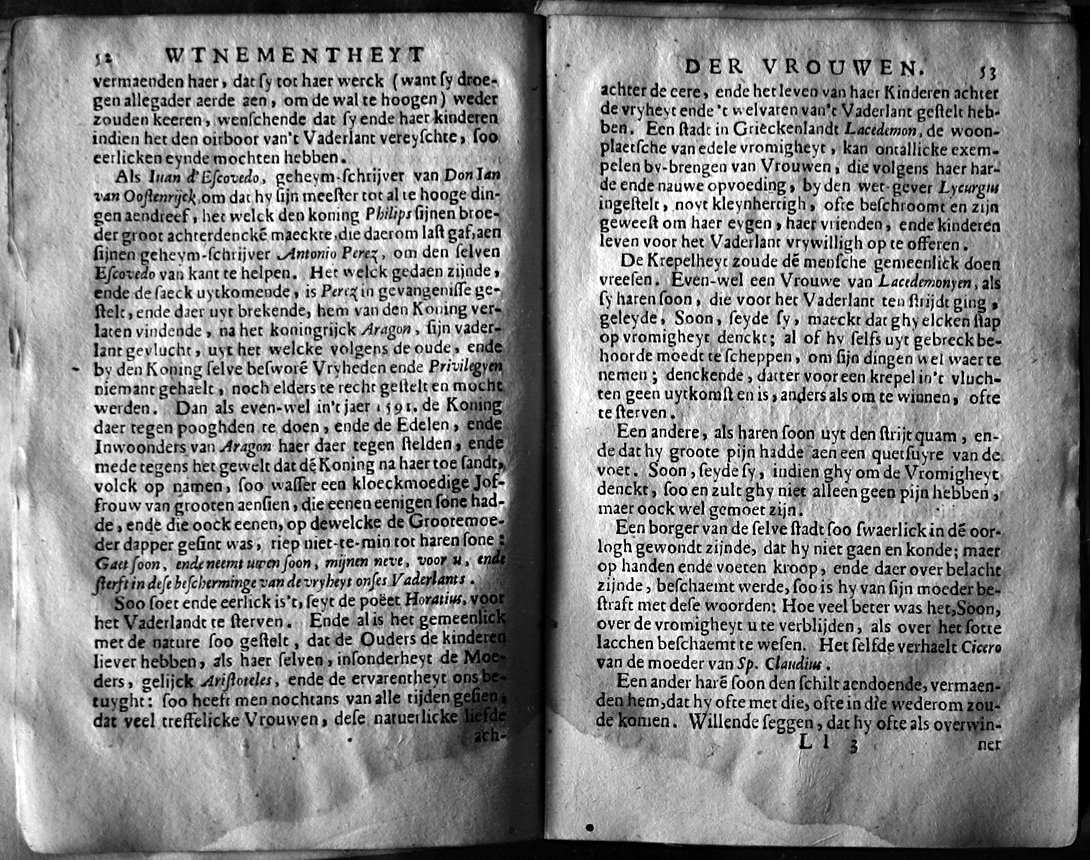 52 WTNEMENTHEYT
vermaenden haer, dat ſy tot haer werck (want ſy droe-
gen allegader aerde aen, om de wal te hoogen) weder
zouden keeren, wenſchende dat ſy ende haer kinderen
indien het den oirboor van't Vaderlant vereyſchte, ſoo
eerlicken eynde mochten hebben.
Als Iuan d'Eſcovedo, geheym-ſchrijver van Don Ian
van Ooſtenrijck, om dat hy ſijn meeſter tot al te hooge din-
gen aendreef, het welck den koning Philips ſijnen broe-
der groot achterdenckē maeckte, die daerom laſt gaf, aen
ſijnen geheym-ſchrijver Antonio Perez, om den ſelven
Eſcovedo van kant te helpen. Het welck gedaen zijnde,
ende de ſaeck uytkomende, is Perez in gevangeniſſe ge-
ſtelt, ende daer uyt brekende, hem van den Koning ver-
laten vindende, na het koningrijck Aragon, ſijn vader-
lant gevlucht, uyt het welcke volgens de oude, ende
by den Koning ſelve beſworē Vryheden ende Privilegyen
niemant gehaelt, noch elders te recht geſtelt en mocht
werden. Dan als even-wel in't jaer 1591. de Koning
daer tegen pooghden te doen, ende de Edelen, ende
Inwoonders van Aragon haer daer tegen ſtelden, ende
mede tegens het gewelt dat dē Koning na haer toe ſandt,
volck op namen, ſoo waſſer een kloeckmoedige Jof-
frouw van grooten aenſien, die eenen eenigen ſone had-
de, ende die oock eenen, op dewelcke de Grootemoe-
der dapper geſint was, riep niet-te-min tot haren ſone:
Gaet ſoon, ende neemt uwen ſoon, mijnen neve, voor u, ende
ſterft in deſe beſcherminge van de vryheyt onſes Vaderlants.
Soo ſoet ende eerlick is't, ſeyt de poëet Horatius, voor
het Vaderlandt te ſterven. Ende al is het gemeenlick
met de nature ſoo geſtelt, dat de Ouders de kinderen
liever hebben, als haer ſelven, inſonderheyt de Moe-
ders, gelijck Ariſtoteles, ende de ervarentheyt ons be-
tuyght: ſoo heeft men nochtans van alle tijden geſien,
dat veel treffelicke Vrouwen, deſe natuerlicke liefde
ach-
DER VROUWEN. 53
achter de eere, ende het leven van haer Kinderen achter
de vryheyt ende 't welvaren van't Vaderlant geſtelt heb-
ben. Een ſtadt in Grieckenlandt Lacedemon, de woon-
plaetſche van edele vromigheyt, kan ontallicke exem-
pelen by-brengen van Vrouwen, die volgens haer har-
de ende nauwe opvoeding, by den wet-gever Lycurgus
ingeſtelt, noyt kleynhertigh, ofte beſchroomt en zijn
geweeſt om haer eygen, haer vrienden, ende kinderen
leven voor het Vaderlant vrywilligh op te offeren.
De Krepelheyt zoude dē menſche gemeenlick doen
vreeſen. Even-wel een Vrouwe van Lacedemonyen, als
ſy haren ſoon, die voor het Vaderlant ten ſtrijdt ging,
geleyde, Soon, ſeyde ſy, maeckt dat ghy elcken ſtap
op vromigheyt denckt; al of hy ſelfs uyt gebreck be-
hoorde moedt te ſcheppen, om ſijn dingen wel waer te
nemen; denckende, datter voor een krepel in't vluch-
ten geen uytkomſt en is, anders als om te winnen, ofte
te ſterven.
Een andere, als haren ſoon uyt den ſtrijt quam, en-
de dat hy groote pijn hadde aen een quetſuyre van de
voet. Soon, ſeyde ſy, indien ghy om de Vromigheyt
denckt, ſoo en zult ghy niet alleen geen pijn hebben,
maer oock wel gemoet zijn.
Een borger van de ſelve ſtadt ſoo ſwaerlick in dē oor-
logh gewondt zijnde, dat hy niet gaen en konde; maer
op handen ende voeten kroop, ende daer over belacht
zijnde, beſchaemt werde, ſoo is hy van ſijn moeder be-
ſtraft met deſe woorden: Hoe veel beter was het, Soon,
over de vromigheyt u te verblijden, als over het ſotte
lacchen beſchaemt te weſen. Het ſelfde verhaelt Cicero
van de moeder van Sp. Claudius.
Een ander harē ſoon den ſchilt aendoende, vermaen-
den hem, dat hy ofte met die, ofte in die wederom zou-
de komen. Willende ſeggen, dat hy ofte als overwin-
L l 3 ner